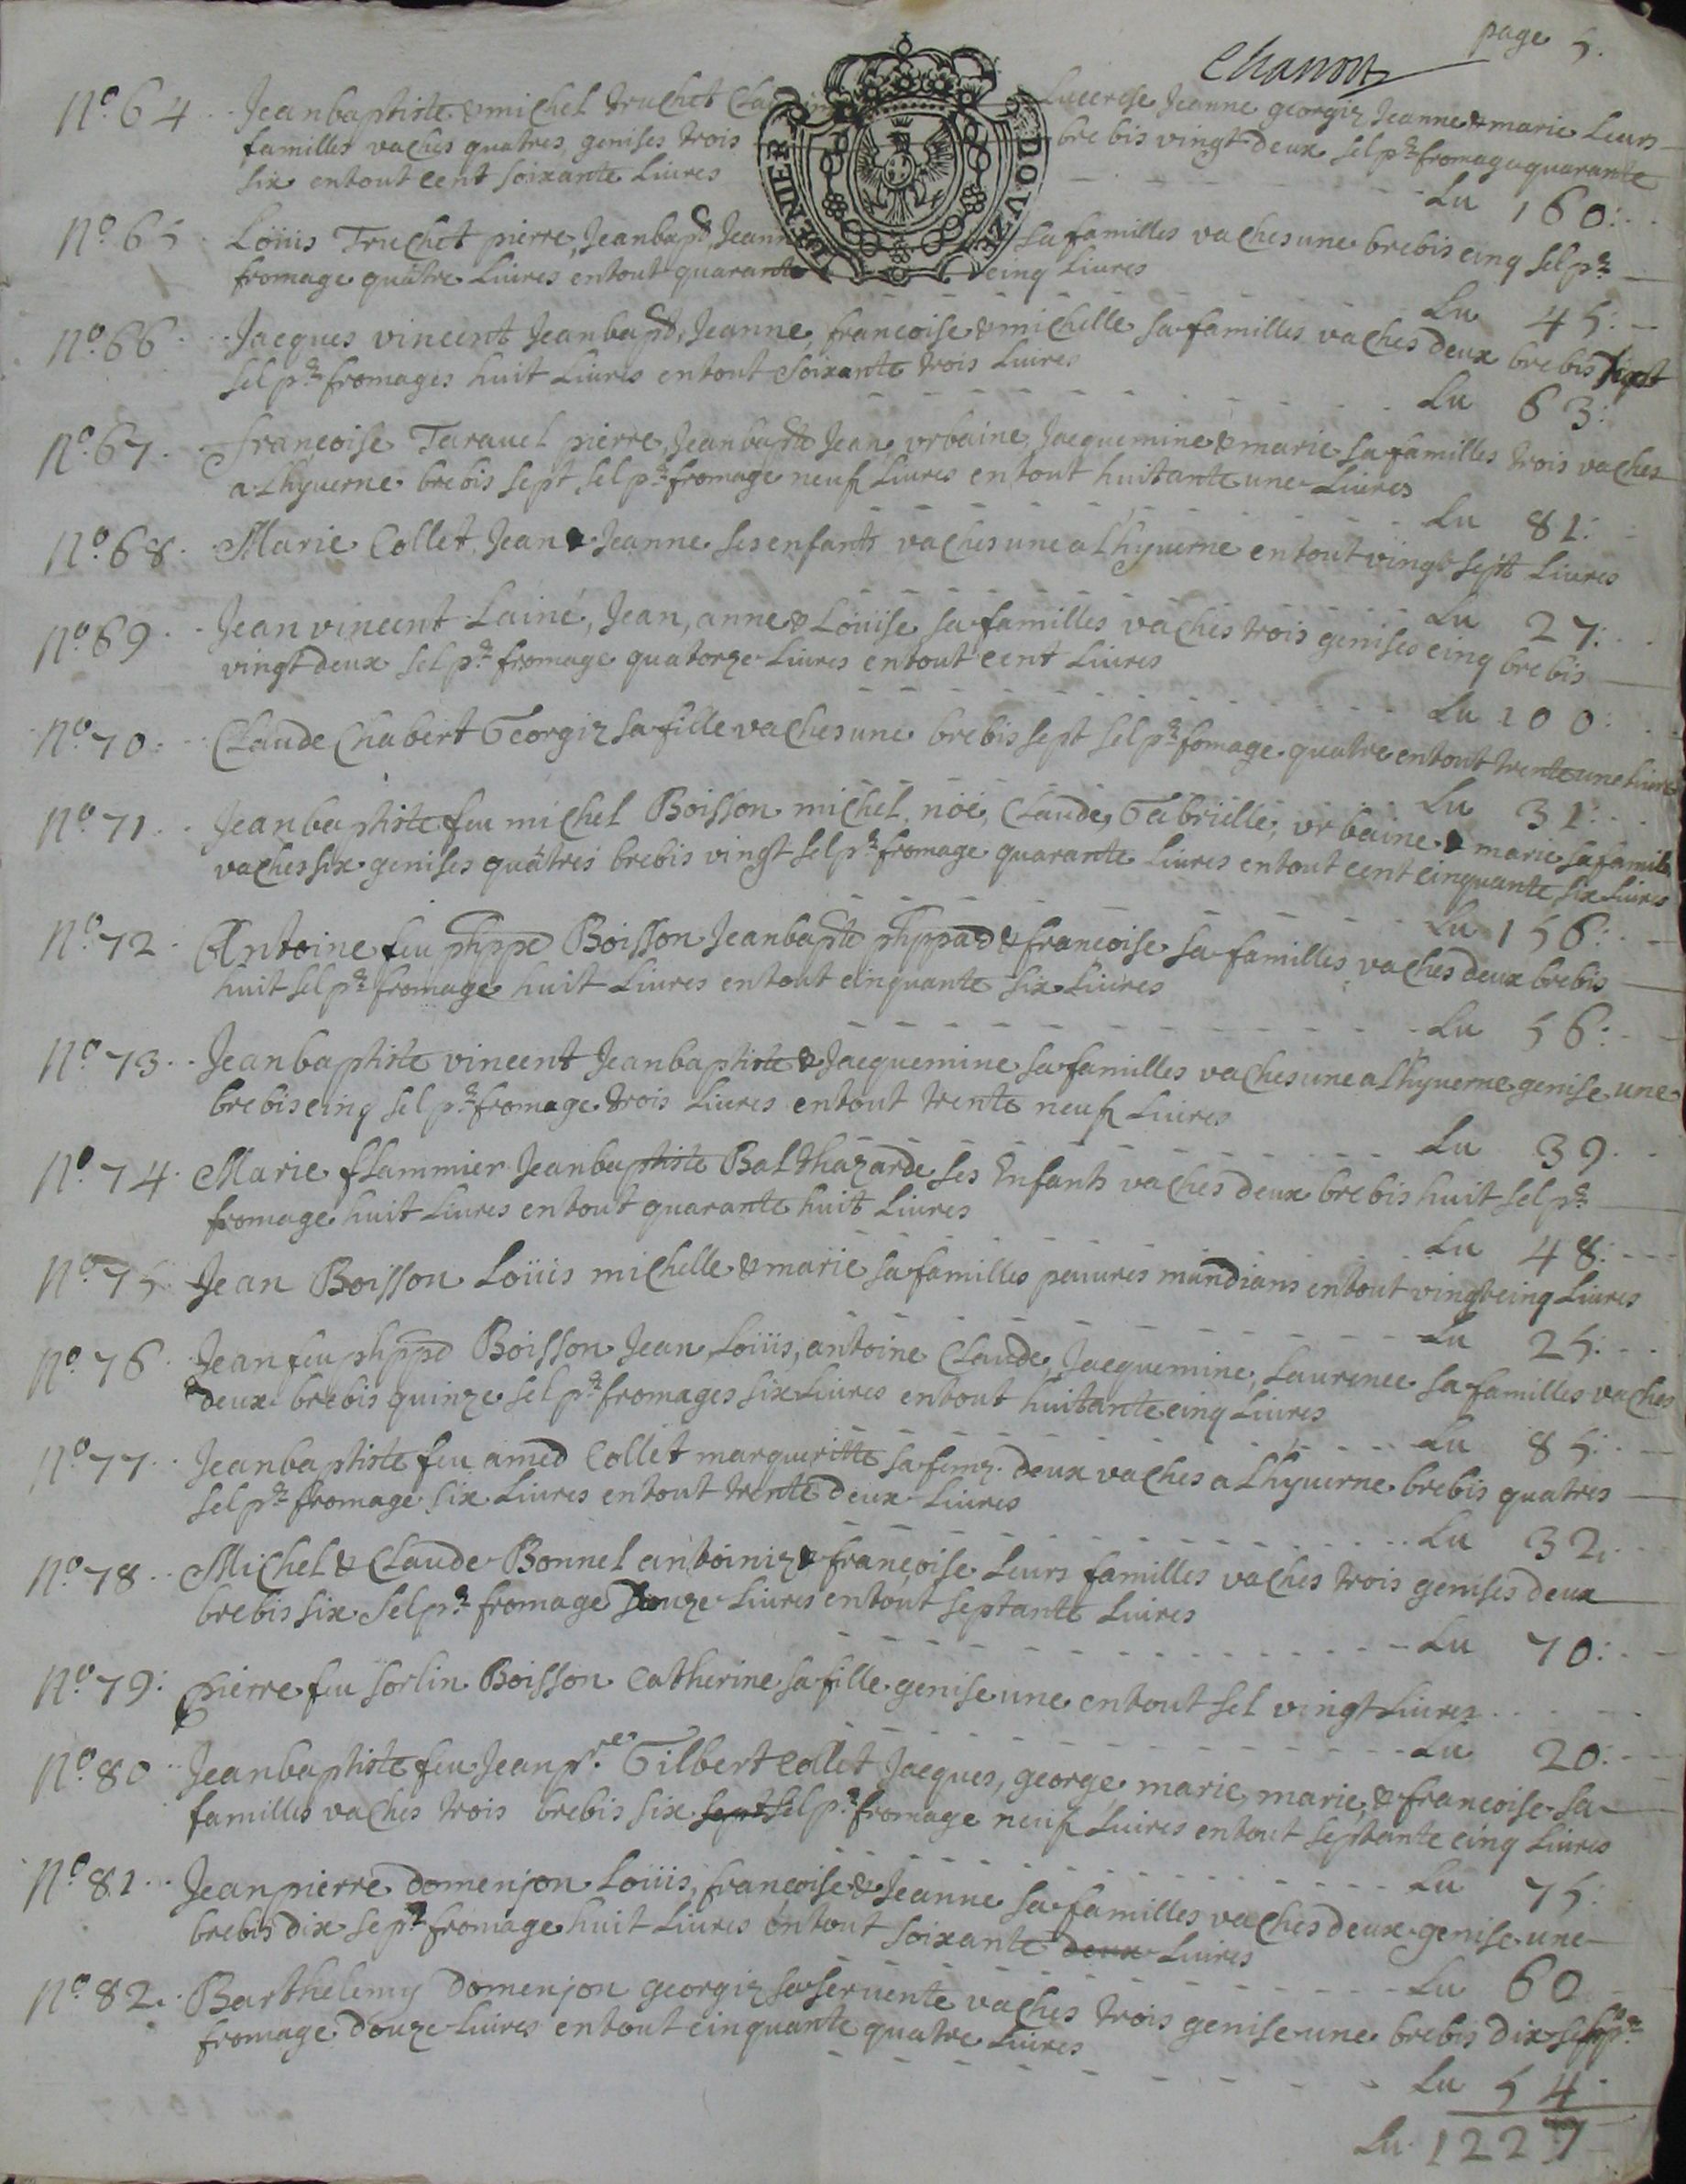 page 5.
Chanoux
N.o 64 .. Jeanbaptiste & michel truchet Lucerese Jeanne georgiz Jeanne & marie Leurs
familles vaches quatres, genises trois brebis vingt deux sel pr fromage quarante
six entout cent soixante Liures
Lu 160:
DENIER DOVZE
N.o 65 . Loüis Truchet pierre, Jeanbapt, Jeanne sa familles vaches une brebis cinq sel pr
fromage quâtre Liures entout quarante cinq Liures
Lu 45:
N.o 66 .. Jacques vincent Jeanbapt, Jeanne, francoise & michelle sa familles vaches deux brebis sept
sel pr fromages huit Liures entout soixante trois Liures
Lu 63:
N.o 67 .. françoise Tarauel pierre, Jeanbapte Jean, vrbaine, Jacquemine & marie sa familles trois vaches
a Lhyuerne brebis sept sel pr fromage neuf Liures entout huitante une Liures
Lu 81:
N.o 68 . Marie Collet Jean & Jeanne ses enfants vaches une a Lhyuerne entout vingt sept Liures
Lu 27:
N.o 69 .. Jean vincent Lainé, Jean, anne & Loüise sa familles vaches trois genises cinq brebis
vingt deux sel pr fromage quatorze Liures entout cent Liures
Lu 100:
N.o 70 .. Claude Chabert Georgiz sa fille vaches une brebis sept sel pr fomage quatre entout trente une Liures
Lu 31:
N.o 71 .. Jeanbaptiste feu michel Boisson michel, noé, Claude, Gabrielle, vrbaine & marie sa famille
vaches six genises quâtres brebis vingt sel pr fromage quarante Liures entout cent cinquante six Liures
Lu 156:
N.o 72 . Antoine feu phppe Boisson Jeanbapte phppad & francoise sa familles vaches deux brebis
huit sel pr fromage huit Liures entout cinquante six Liures
Lu 56:
N.o 73 .. Jeanbaptiste vincent Jeanbaptiste & Jacquemine sa familles vaches une a Lhyuerne genise une
brebis cinq sel pr fromage trois Liures entout trente neuf Liures
Lu 39.
N.o 74 . Marie fflammier Jeanbaptiste Balthazarde ses Enfants vaches deux brebis huit sel pr
fromage huit Liures entout quarante huit Liures
Lu 48:
N.o 75 . Jean Boisson Loüis michelle & marie sa familles peuures mandians entout vingt cinq Liures
Lu 25:
N.o 76 . Jean feu phppe Boisson Jean, Loüis, antoine Claude, Jacquemine, Laurence sa familles vaches
deux brebis quinze sel pr fromages six Liures entout huitante cinq Liures
Lu 85:
N.o 77 .. Jeanbaptiste feu amed Collet margueritte sa femz. deux vaches a Lhyuerne brebis quatres
sel pr fromage six Liures entout trente deux Liures
Lu 32.
N.o 78 .. Michel & Claude Bonnel antoiniz & françoise Leurs familles vaches trois genises deux
brebis six sel pr fromage douze Liures entout septante Liures
Lu 70:
N.o 79: pierre feu sorlin Boisson Catherine sa fille genise une entout sel vingt Liures
Lu 20:
N.o 80 .. Jeanbaptiste feu Jean pre Gilbert collet Jacques, george, marie, marie, & francoise sa
familles vaches trois brebis six sept sel pr fromage neuf Liures entout septante cinq Liures
Lu 75:
N.o 81 .. Jean pierre domenjon Loüis, françoise & Jeanne sa familles vaches deux genise une
brebis dix sel pr fromage huit Liures entout soixante deux Liures
Lu 60
N.o 82 .. Barthelemy domenjon georgiz sa seruente vaches trois genise une brebis dix sel pr
fromage douze Liures entout cinquante quatre Liures
Lu 54.
Lu. 1227